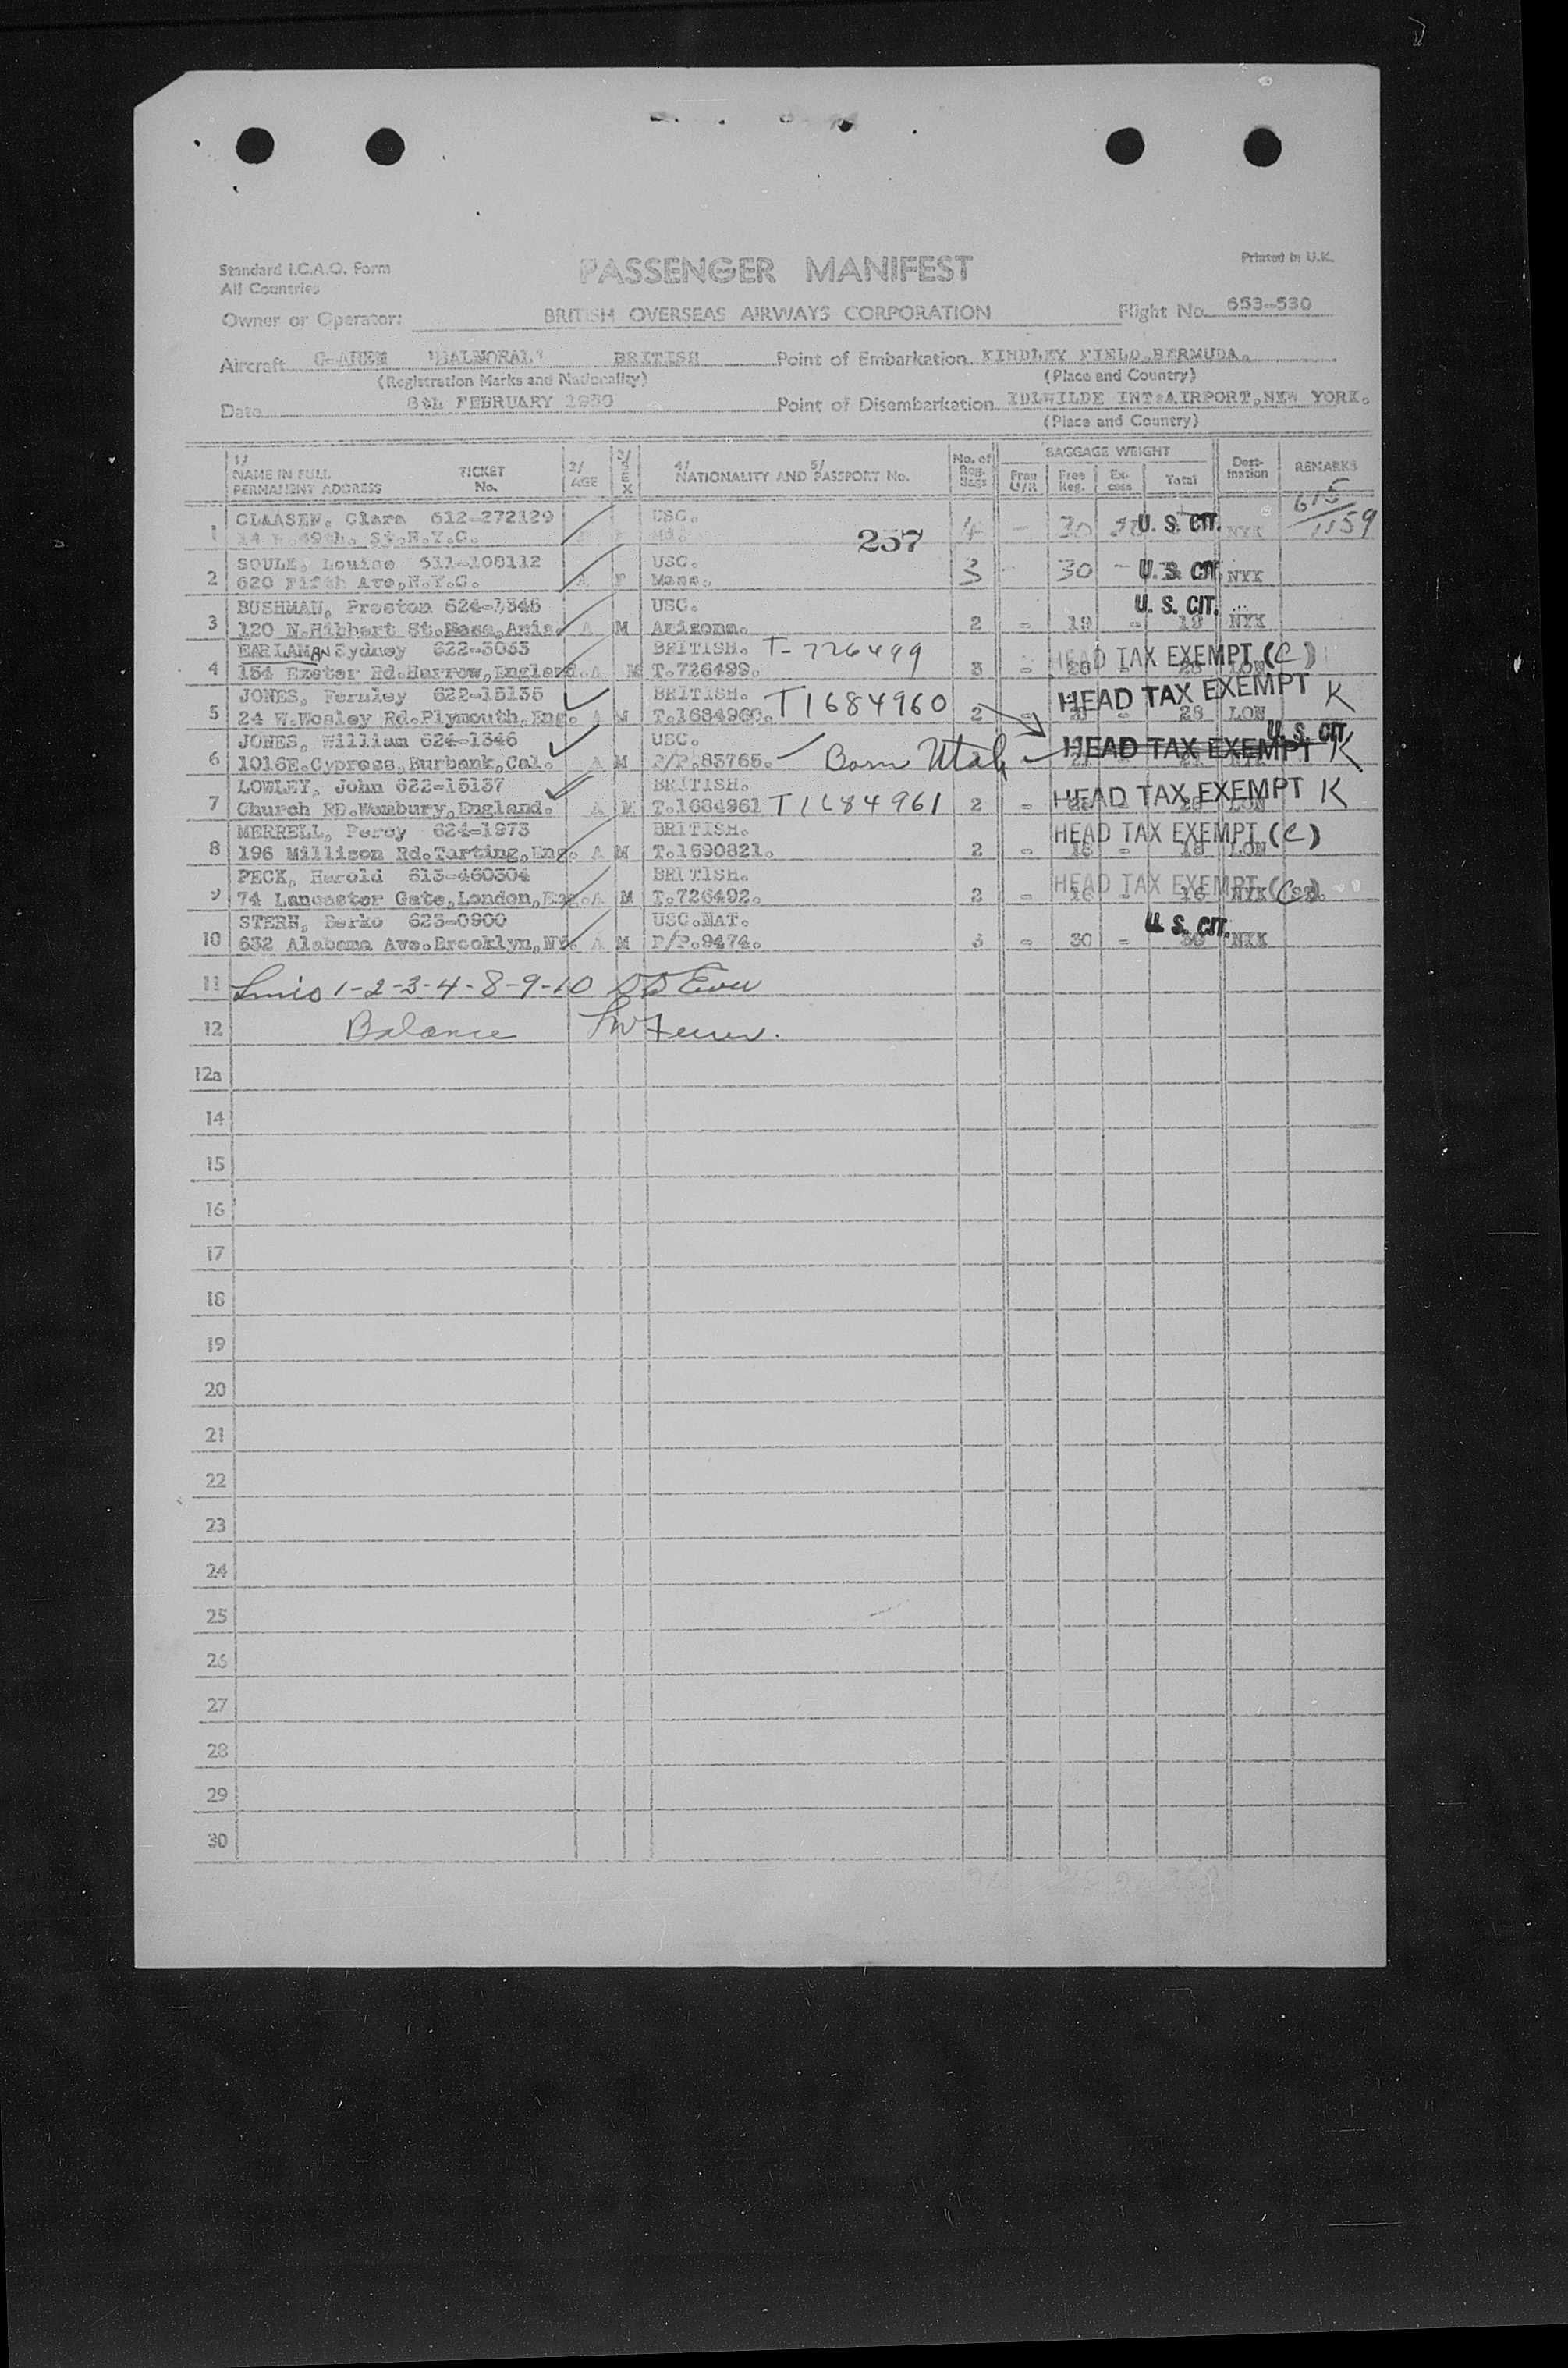 Standard I.C.A.O. Form
All Countries
PASSENGER MANIFEST
Printed in U.K.
Owner or Operator: BRITISH OVERSEAS AIRWAYS CORPORATION Flight No. 653-530
Aircraft G-AHEM "BALMORAL" BRITISH Point of Embarkation KINDLEY FIELD.BERMUDA.
(Registration Marks and Nationality) (Place and Country)
Date 8th FEBRUARY 1950 Point of Disembarkation IDLWILDE INT:AIRPORT,NEW YORK.
(Place and Country)
1/ NAME IN FULL PERMANENT ADDRESS TICKET No. 2/ AGE 3/ SEX 4/ 5/ NATIONALITY AND PASSPORT No. No. of Reg. Bags BAGGAGE WEIGHT Free U/R Free Reg. Ex-cess Total Dest-ination REMARKS
615
1159
CLAASEN, Clara 612-272129 USC.
1 14 E.49th. St.N.Y.C. F Md. 257 4 - 30 U. S. CIT. NYK
SOULE, Louise 511-108112 USC.
2 620 Fifth Ave,N.Y.C. A F Mass. 3 - 30 - U. S. CIT. NYK
BUSHMAN, Preston 624-1345 USC. U. S. CIT.
3 120 N.Hibbert St.Mesa,Aris. A M Arizona. 2 - 19 - 19 NYK
EARLAMAN Sydney 622-3063 BRITISH. T-726499 HEAD TAX EXEMPT (C)
4 154 Exeter Rd.Harrow,England. A M T.726499. 3 - 28 - 28 LON
JONES, Fernley 622-15135 BRITISH. T1684960 HEAD TAX EXEMPT K
5 24 W.Wosley Rd.Plymouth,Eng. A M T.1684960. 2 - - 28 LON
JONES, William 624-1346 USC. U. S. CIT.
6 1016E.Cypress,Burbank,Cal. A M P/P.85765. Born Utah HEAD TAX EXEMPT K
LOWLEY, John 622-15137 BRITISH.
7 Church RD.Wembury,England. A M T.1684961 T1684961 2 - HEAD TAX EXEMPT K LON
MERRELL, Percy 624-1973 BRITISH. HEAD TAX EXEMPT (C)
8 196 Millison Rd.Tarting,Eng. A M T.1690821. 2 - 18 - 18 LON
PECK, Harold 613-460304 BRITISH. HEAD TAX EXEMPT (C)
9 74 Lancaster Gate,London,Eng. A M T.726492. 2 - 16 - 16 NYK
STERN, Berko 625-0900 USC.NAT. U. S. CIT.
10 632 Alabama Ave.Brooklyn,NY. A M P/P.9474. 3 - 30 - 30 NYK
11 1-2-3-4-8-9-10
12 Balance
12a
14
15
16
17
18
19
20
21
22
23
24
25
26
27
28
29
30